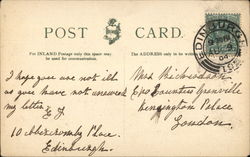 POST CARD.
For INLAND Postage only this space may be used for communication.
The ADDRESS only to be written
EDINBURGH
04
I hope you are not ill
as you have not answered
my letter. E. J.
10 Abercromby Place.
Edinburgh.
Miss Nicholson
c/o Countess Granville
Kensington Palace
London